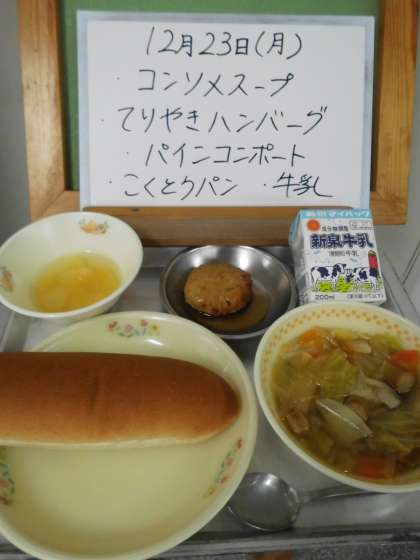 12月23日(月)
・コンソメスープ
・てりやきハンバーグ
・パインコンポート
・こくとうパン ・牛乳
成分無調整
新泉牛乳
200ml